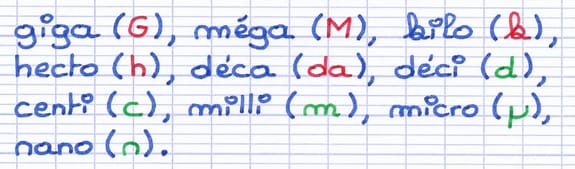 giga (G), méga (M), kilo (k),
hecto (h), déca (da), déci (d),
centi (c), milli (m), micro (μ),
nano (n).